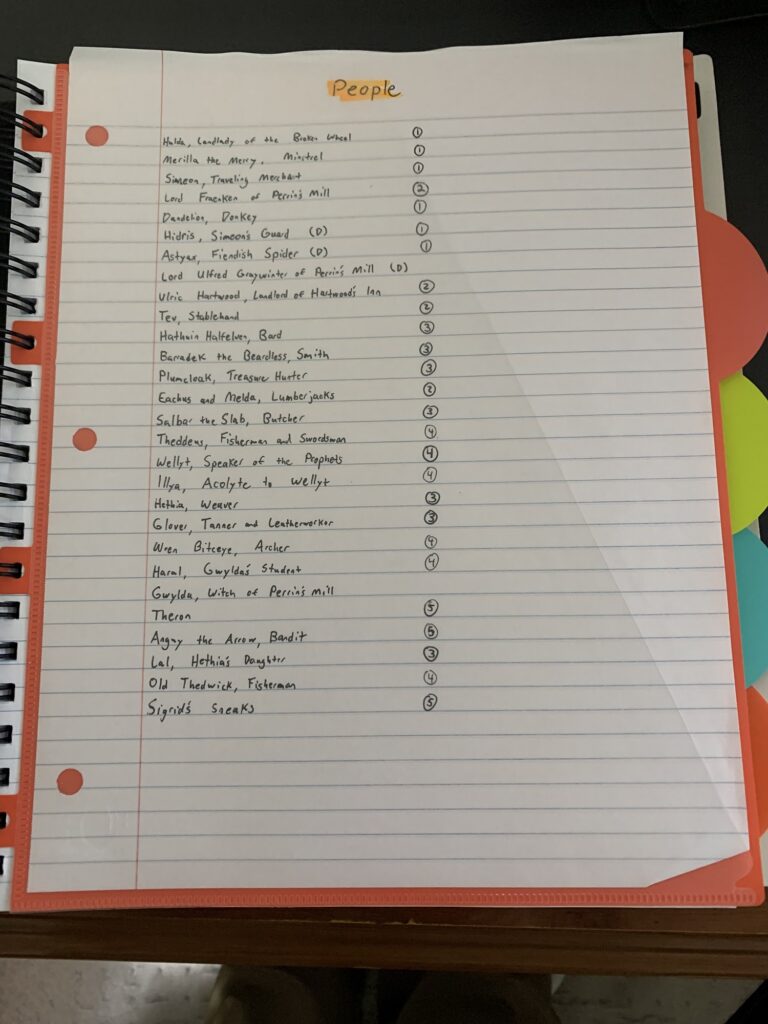 People
Hulda, Landlady of the Broken Wheel ①
Merilla the Mercy, Minstrel ①
Simeon, Traveling Merchant ①
Lord Fraenken of Perrin's Mill ②
Dandelion, Donkey ①
Hidris, Simeon's Guard (D) ①
Astyax, Fiendish Spider (D) ①
Lord Ulfred Graywinter of Perrin's Mill (D)
Ulric Hartwood, Landlord of Hartwood's Inn ②
Tev, Stablehand ②
Hathuin Halfelven, Bard ③
Barradek the Beardless, Smith ③
Plumecloak, Treasure Hunter ③
Eachus and Melda, Lumberjacks ②
Salbar the Slab, Butcher ③
Theddeus, Fisherman and Swordsman ④
Wellyt, Speaker of the Prophets ④
Illya, Acolyte to Wellyt ④
Hethia, Weaver ③
Glover, Tanner and Leatherworker ③
Wren Biteeye, Archer ④
Haral, Gwylda's Student ④
Gwylda, Witch of Perrin's Mill
Theron ⑤
Anguy the Arrow, Bandit ⑤
Lal, Hethia's Daughter ③
Old Thedwick, Fisherman ④
Sigrid's Sneaks ⑤